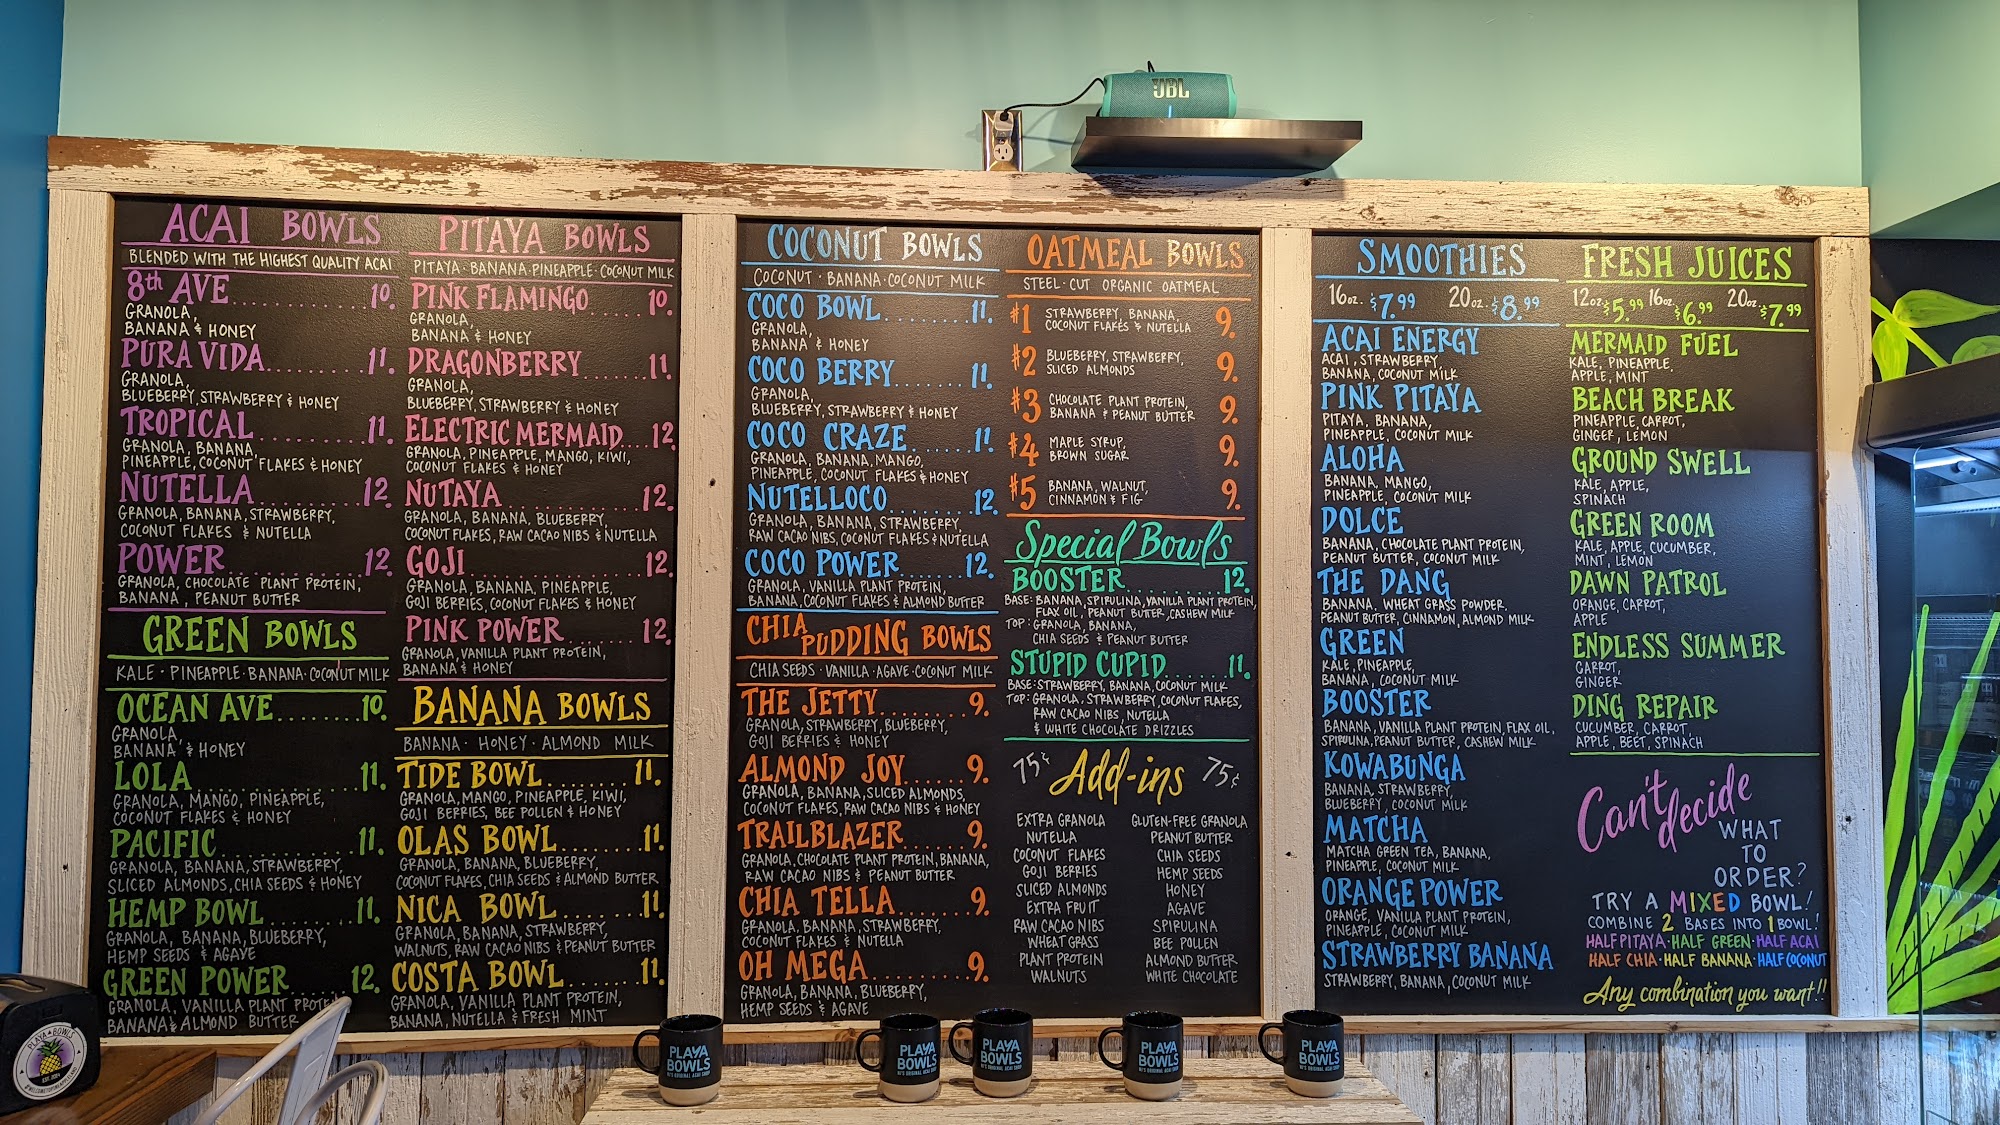 JBL
ACAI BOWLS
BLENDED WITH THE HIGHEST QUALITY ACAI
8th AVE..........10.
GRANOLA,
BANANA & HONEY
PURA VIDA..........11.
GRANOLA,
BLUEBERRY, STRAWBERRY & HONEY
TROPICAL..........11.
GRANOLA, BANANA,
PINEAPPLE, COCONUT FLAKES & HONEY
NUTELLA..........12.
GRANOLA, BANANA, STRAWBERRY,
COCONUT FLAKES & NUTELLA
POWER..........12.
GRANOLA, CHOCOLATE PLANT PROTEIN,
BANANA, PEANUT BUTTER
GREEN BOWLS
KALE · PINEAPPLE · BANANA · COCONUT MILK
OCEAN AVE........10.
GRANOLA,
BANANA & HONEY
LOLA..........11.
GRANOLA, MANGO, PINEAPPLE,
COCONUT FLAKES & HONEY
PACIFIC..........11.
GRANOLA, BANANA, STRAWBERRY,
SLICED ALMONDS, CHIA SEEDS & HONEY
HEMP BOWL........11.
GRANOLA, BANANA, BLUEBERRY,
HEMP SEEDS & AGAVE
GREEN POWER......12.
GRANOLA, VANILLA PLANT
BANANA & ALMOND BUTTER
PITAYA BOWLS
PITAYA · BANANA · PINEAPPLE · COCONUT MILK
PINK FLAMINGO......10.
GRANOLA,
BANANA & HONEY
DRAGONBERRY.......11.
GRANOLA,
BLUEBERRY, STRAWBERRY & HONEY
ELECTRIC MERMAID....12.
GRANOLA, PINEAPPLE, MANGO, KIWI,
COCONUT FLAKES & HONEY
NUTAYA..........12.
GRANOLA, BANANA, BLUEBERRY,
COCONUT FLAKES, RAW CACAO NIBS & NUTELLA
GOJI..........12.
GRANOLA, BANANA, PINEAPPLE,
GOJI BERRIES, COCONUT FLAKES & HONEY
PINK POWER........12.
GRANOLA, VANILLA PLANT PROTEIN,
BANANA & HONEY
BANANA BOWLS
BANANA · HONEY · ALMOND MILK
TIDE BOWL........11.
GRANOLA, MANGO, PINEAPPLE, KIWI,
GOJI BERRIES, BEE POLLEN & HONEY
OLAS BOWL........11.
GRANOLA, BANANA, BLUEBERRY,
COCONUT FLAKES, CHIA SEEDS & ALMOND BUTTER
NICA BOWL........11.
GRANOLA, BANANA, STRAWBERRY,
WALNUTS, RAW CACAO NIBS & PEANUT BUTTER
COSTA BOWL.......11.
GRANOLA, VANILLA PLANT PROTEIN,
BANANA, NUTELLA & FRESH MINT
COCONUT BOWLS
COCONUT · BANANA · COCONUT MILK
COCO BOWL........11.
GRANOLA,
BANANA & HONEY
COCO BERRY.......11.
GRANOLA,
BLUEBERRY, STRAWBERRY & HONEY
COCO CRAZE.......11.
GRANOLA, BANANA, MANGO,
PINEAPPLE, COCONUT FLAKES & HONEY
NUTELLOCO........12.
GRANOLA, BANANA, STRAWBERRY,
RAW CACAO NIBS, COCONUT FLAKES & NUTELLA
COCO POWER.......12.
GRANOLA, VANILLA PLANT PROTEIN,
BANANA, COCONUT FLAKES & ALMOND BUTTER
CHIA PUDDING BOWLS
CHIA SEEDS · VANILLA · AGAVE · COCONUT MILK
THE JETTY........9.
GRANOLA, STRAWBERRY, BLUEBERRY,
GOJI BERRIES & HONEY
ALMOND JOY......9.
GRANOLA, BANANA, SLICED ALMONDS,
COCONUT FLAKES, RAW CACAO NIBS & HONEY
TRAILBLAZER......9.
GRANOLA, CHOCOLATE PLANT PROTEIN, BANANA,
RAW CACAO NIBS & PEANUT BUTTER
CHIA TELLA.......9.
GRANOLA, BANANA, STRAWBERRY,
COCONUT FLAKES & NUTELLA
OH MEGA.........9.
GRANOLA, BANANA, BLUEBERRY,
HEMP SEEDS & AGAVE
OATMEAL BOWLS
STEEL-CUT ORGANIC OATMEAL
#1 STRAWBERRY, BANANA, 9.
COCONUT FLAKES & NUTELLA
#2 BLUEBERRY, STRAWBERRY, 9.
SLICED ALMONDS
#3 CHOCOLATE PLANT PROTEIN, 9.
BANANA & PEANUT BUTTER
#4 MAPLE SYRUP, 9.
BROWN SUGAR
#5 BANANA, WALNUT, 9.
CINNAMON & FIG
Special Bowls
BOOSTER..........12.
BASE: BANANA, SPIRULINA, VANILLA PLANT PROTEIN,
FLAX OIL, PEANUT BUTTER, CASHEW MILK
TOP: GRANOLA, BANANA,
CHIA SEEDS & PEANUT BUTTER
STUPID CUPID......11.
BASE: STRAWBERRY, BANANA, COCONUT MILK
TOP: GRANOLA, STRAWBERRY, COCONUT FLAKES,
RAW CACAO NIBS, NUTELLA
& WHITE CHOCOLATE DRIZZLES
75¢ Add-ins 75¢
EXTRA GRANOLA
NUTELLA
COCONUT FLAKES
GOJI BERRIES
SLICED ALMONDS
EXTRA FRUIT
RAW CACAO NIBS
WHEAT GRASS
PLANT PROTEIN
WALNUTS
GLUTEN-FREE GRANOLA
PEANUT BUTTER
CHIA SEEDS
HEMP SEEDS
HONEY
AGAVE
SPIRULINA
BEE POLLEN
ALMOND BUTTER
WHITE CHOCOLATE
SMOOTHIES
16oz. $7.99 20oz. $8.99
ACAI ENERGY
ACAI, STRAWBERRY,
BANANA, COCONUT MILK
PINK PITAYA
PITAYA, BANANA,
PINEAPPLE, COCONUT MILK
ALOHA
BANANA, MANGO,
PINEAPPLE, COCONUT MILK
DOLCE
BANANA, CHOCOLATE PLANT PROTEIN,
PEANUT BUTTER, COCONUT MILK
THE DANG
BANANA, WHEAT GRASS POWDER,
PEANUT BUTTER, CINNAMON, ALMOND MILK
GREEN
KALE, PINEAPPLE,
BANANA, COCONUT MILK
BOOSTER
BANANA, VANILLA PLANT PROTEIN, FLAX OIL,
SPIRULINA, PEANUT BUTTER, CASHEW MILK
KOWABUNGA
BANANA, STRAWBERRY,
BLUEBERRY, COCONUT MILK
MATCHA
MATCHA GREEN TEA, BANANA,
PINEAPPLE, COCONUT MILK
ORANGE POWER
ORANGE, VANILLA PLANT PROTEIN,
PINEAPPLE, COCONUT MILK
STRAWBERRY BANANA
STRAWBERRY, BANANA, COCONUT MILK
FRESH JUICES
12oz $5.99 16oz. $6.99 20oz. $7.99
MERMAID FUEL
KALE, PINEAPPLE,
APPLE, MINT
BEACH BREAK
PINEAPPLE, CARROT,
GINGER, LEMON
GROUND SWELL
KALE, APPLE,
SPINACH
GREEN ROOM
KALE, APPLE, CUCUMBER,
MINT, LEMON
DAWN PATROL
ORANGE, CARROT,
APPLE
ENDLESS SUMMER
CARROT,
GINGER
DING REPAIR
CUCUMBER, CARROT,
APPLE, BEET, SPINACH
Can't decide
WHAT
TO
ORDER?
TRY A MIXED BOWL!
COMBINE 2 BASES INTO 1 BOWL!
HALF PITAYA · HALF GREEN · HALF ACAI
HALF CHIA · HALF BANANA · HALF COCONUT
Any combination you want!!
PLAYA BOWLS
PLAYA
BOWLS
NJ'S ORIGINAL ACAI SHOP
PLAYA
BOWLS
NJ'S ORIGINAL ACAI SHOP
PLAYA
BOWLS
NJ'S ORIGINAL ACAI SHOP
PLAYA
BOWLS
NJ'S ORIGINAL ACAI SHOP
PLAYA
BOWLS
NJ'S ORIGINAL ACAI SHOP